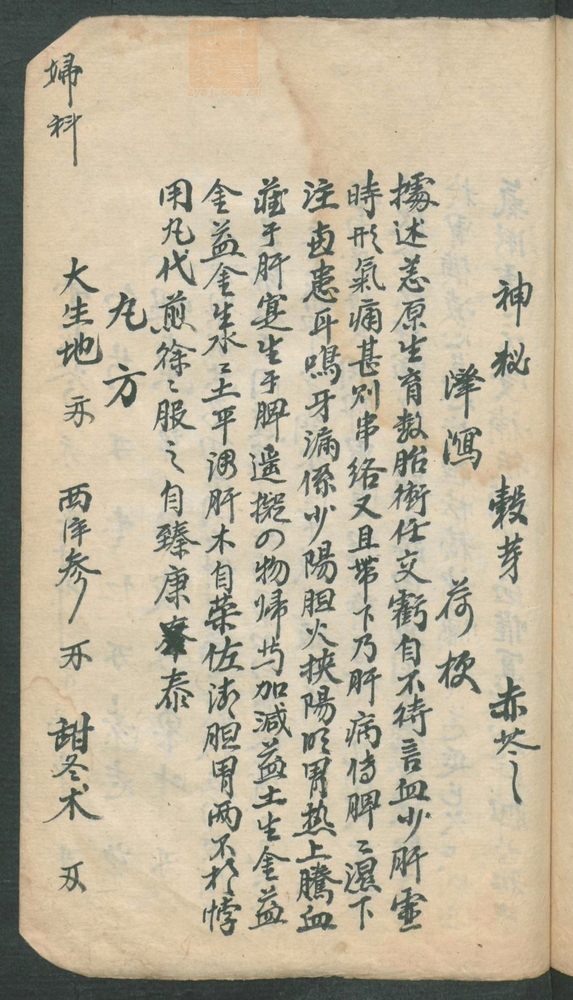 神秘 穀芽 赤苓
澤瀉 荷梗
據述恙原生育数胎衝任交虧自不待言血少肝虛
時形氣痛甚則串络又且帶下乃肝病傳脾〻濕下
注 患耳鳴牙痛係少陽胆火挟陽明胃热上騰血
藏于肝寔生于脾遥擬の物归芍加减益土生金益
金益金生水〻土平调肝木自荣佐清胆胃两不相悖
用丸代煎徐〻服之自臻康泰
丸方
大生地 西洋参 甜冬术
婦科